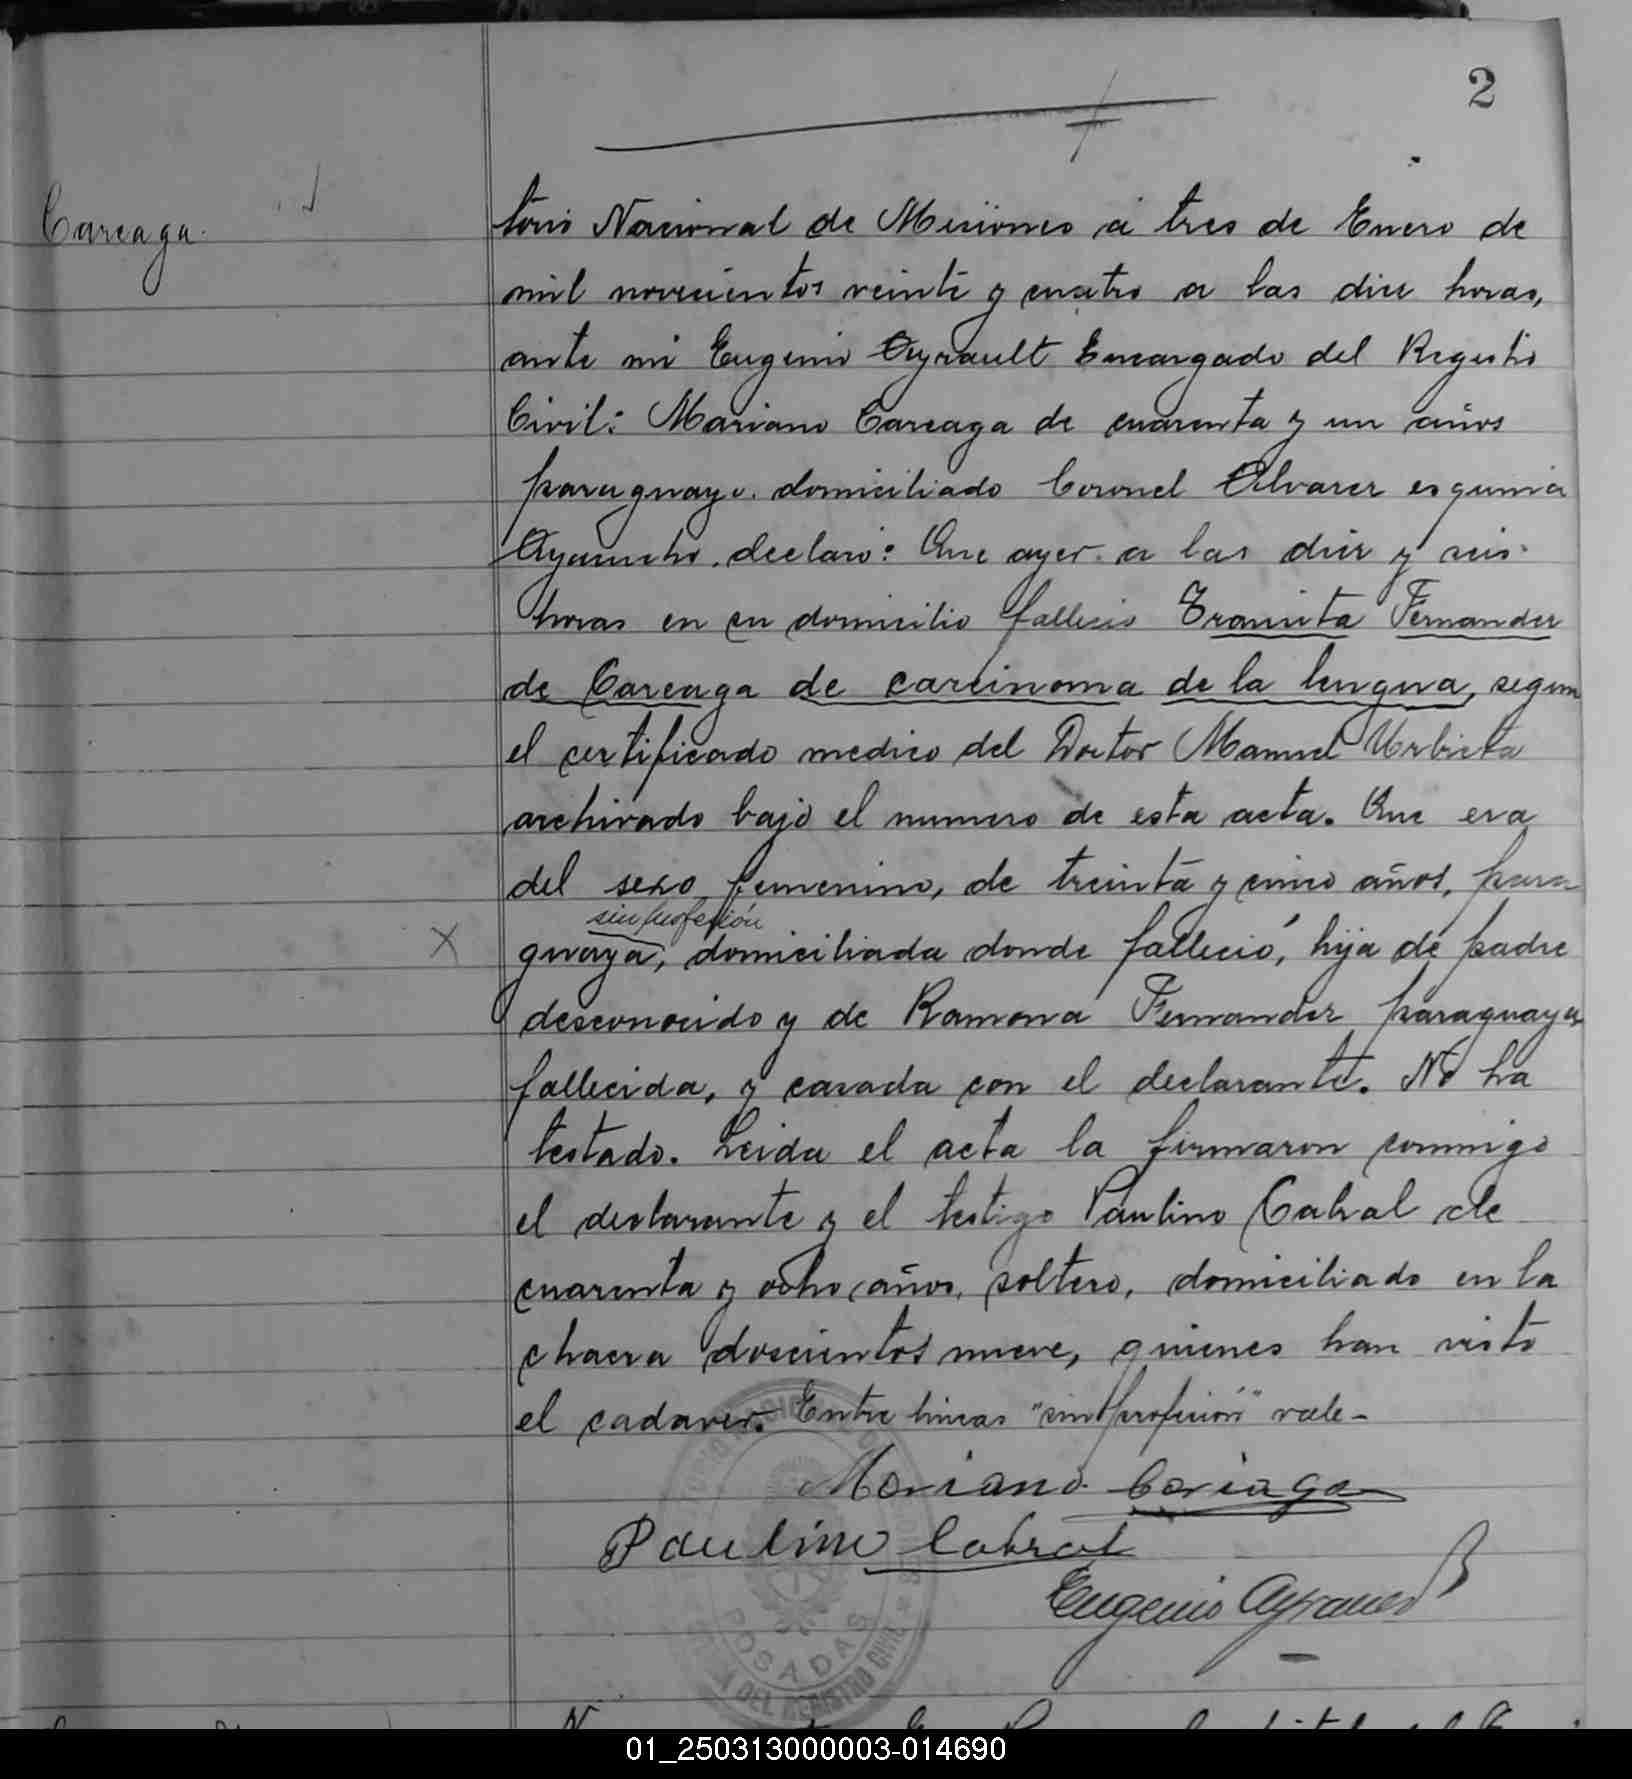 2
Careaga.
torio Nacional de Misiones á tres de Enero de
mil novecientos veinte y cuatro a las diez horas,
ante mi Eugenio Ayrault Encargado del Registro
Civil: Mariano Careaga de cuarenta y un años
paraguayo. domiciliado Coronel Alvarez esquina
Ayacucho. declaró: Que ayer a las diez y seis
horas en su domicilio falleció Fernandez
de Careaga de carcinoma de la lengua, segun
el certificado medico del Doctor Manuel Urbieta
archivado bajo el numero de esta acta. Que era
del sexo femenino, de treinta y cinco años, para
sin profesión
guaya, domiciliada donde falleció, hija de padre
desconocido y de Ramona Fernandez paraguaya
fallecida, y casada con el declarante. No ha
testado. Leida el acta la firmaron conmigo
el declarante y el testigo Paulino Cabral de
cuarenta y ocho años, soltero, domiciliado en la
chacra doscientos nueve, quienes han visto
el cadaver. Entre lineas "sin profesión" vale-
Mariano Cariaga
Paulino Cabral
Eugenio Ayrault
POSADAS
DEL REGISTRO CIVIL
01_250313000003-014690